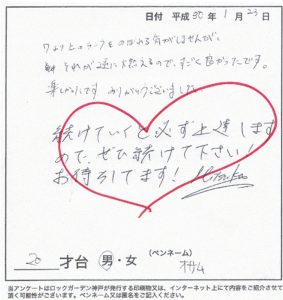 日付 平成 30年 1月 23日
ワより上のコースをのぼれる気がしませんが、
それが逆に燃えるので、すごく良かったです。
楽しかったです ありがとうございました。
続けていくと必ず上達します
ので、ぜひ続けて下さい!
お待ちしてます!
20 才台 男・女 (ペンネーム)
オサム
当アンケートはロックガーデン神戸が発行する印刷物又は、インターネット上にて内容をご紹介させて
頂く可能性がございます。ペンネーム又は匿名をご記入ください。